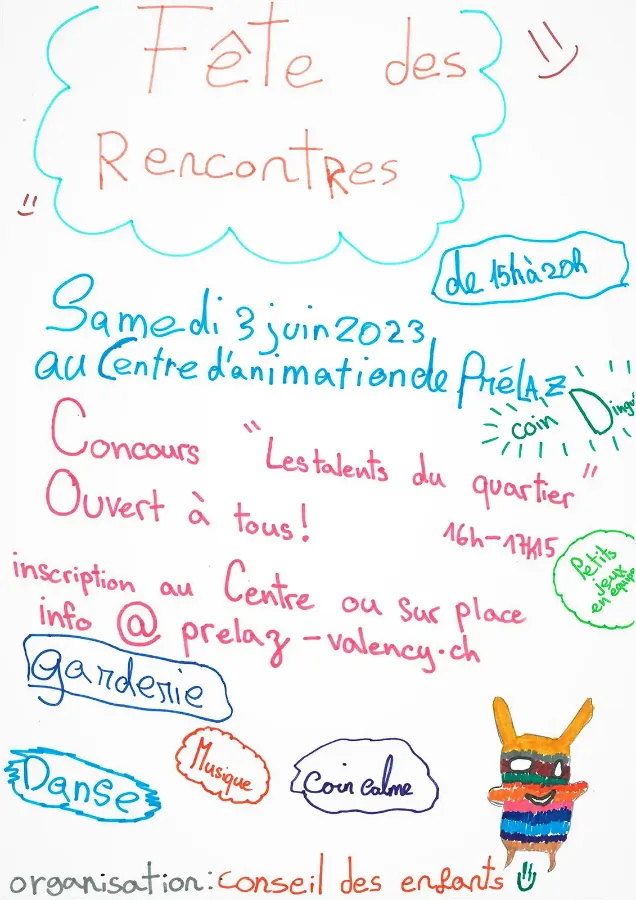 Fête des
Rencontres
de 15h à 20h
Samedi 3 juin 2023
au Centre d'animation de PréLAZ
coin
Concours "Les talents du quartier"
Ouvert à tous!
16h-17h15
Petits
jeux
en équipe
inscription au Centre ou sur place
info @ prelaz-valency.ch
garderie
Danse
Musique
Coin calme
organisation: conseil des enfants